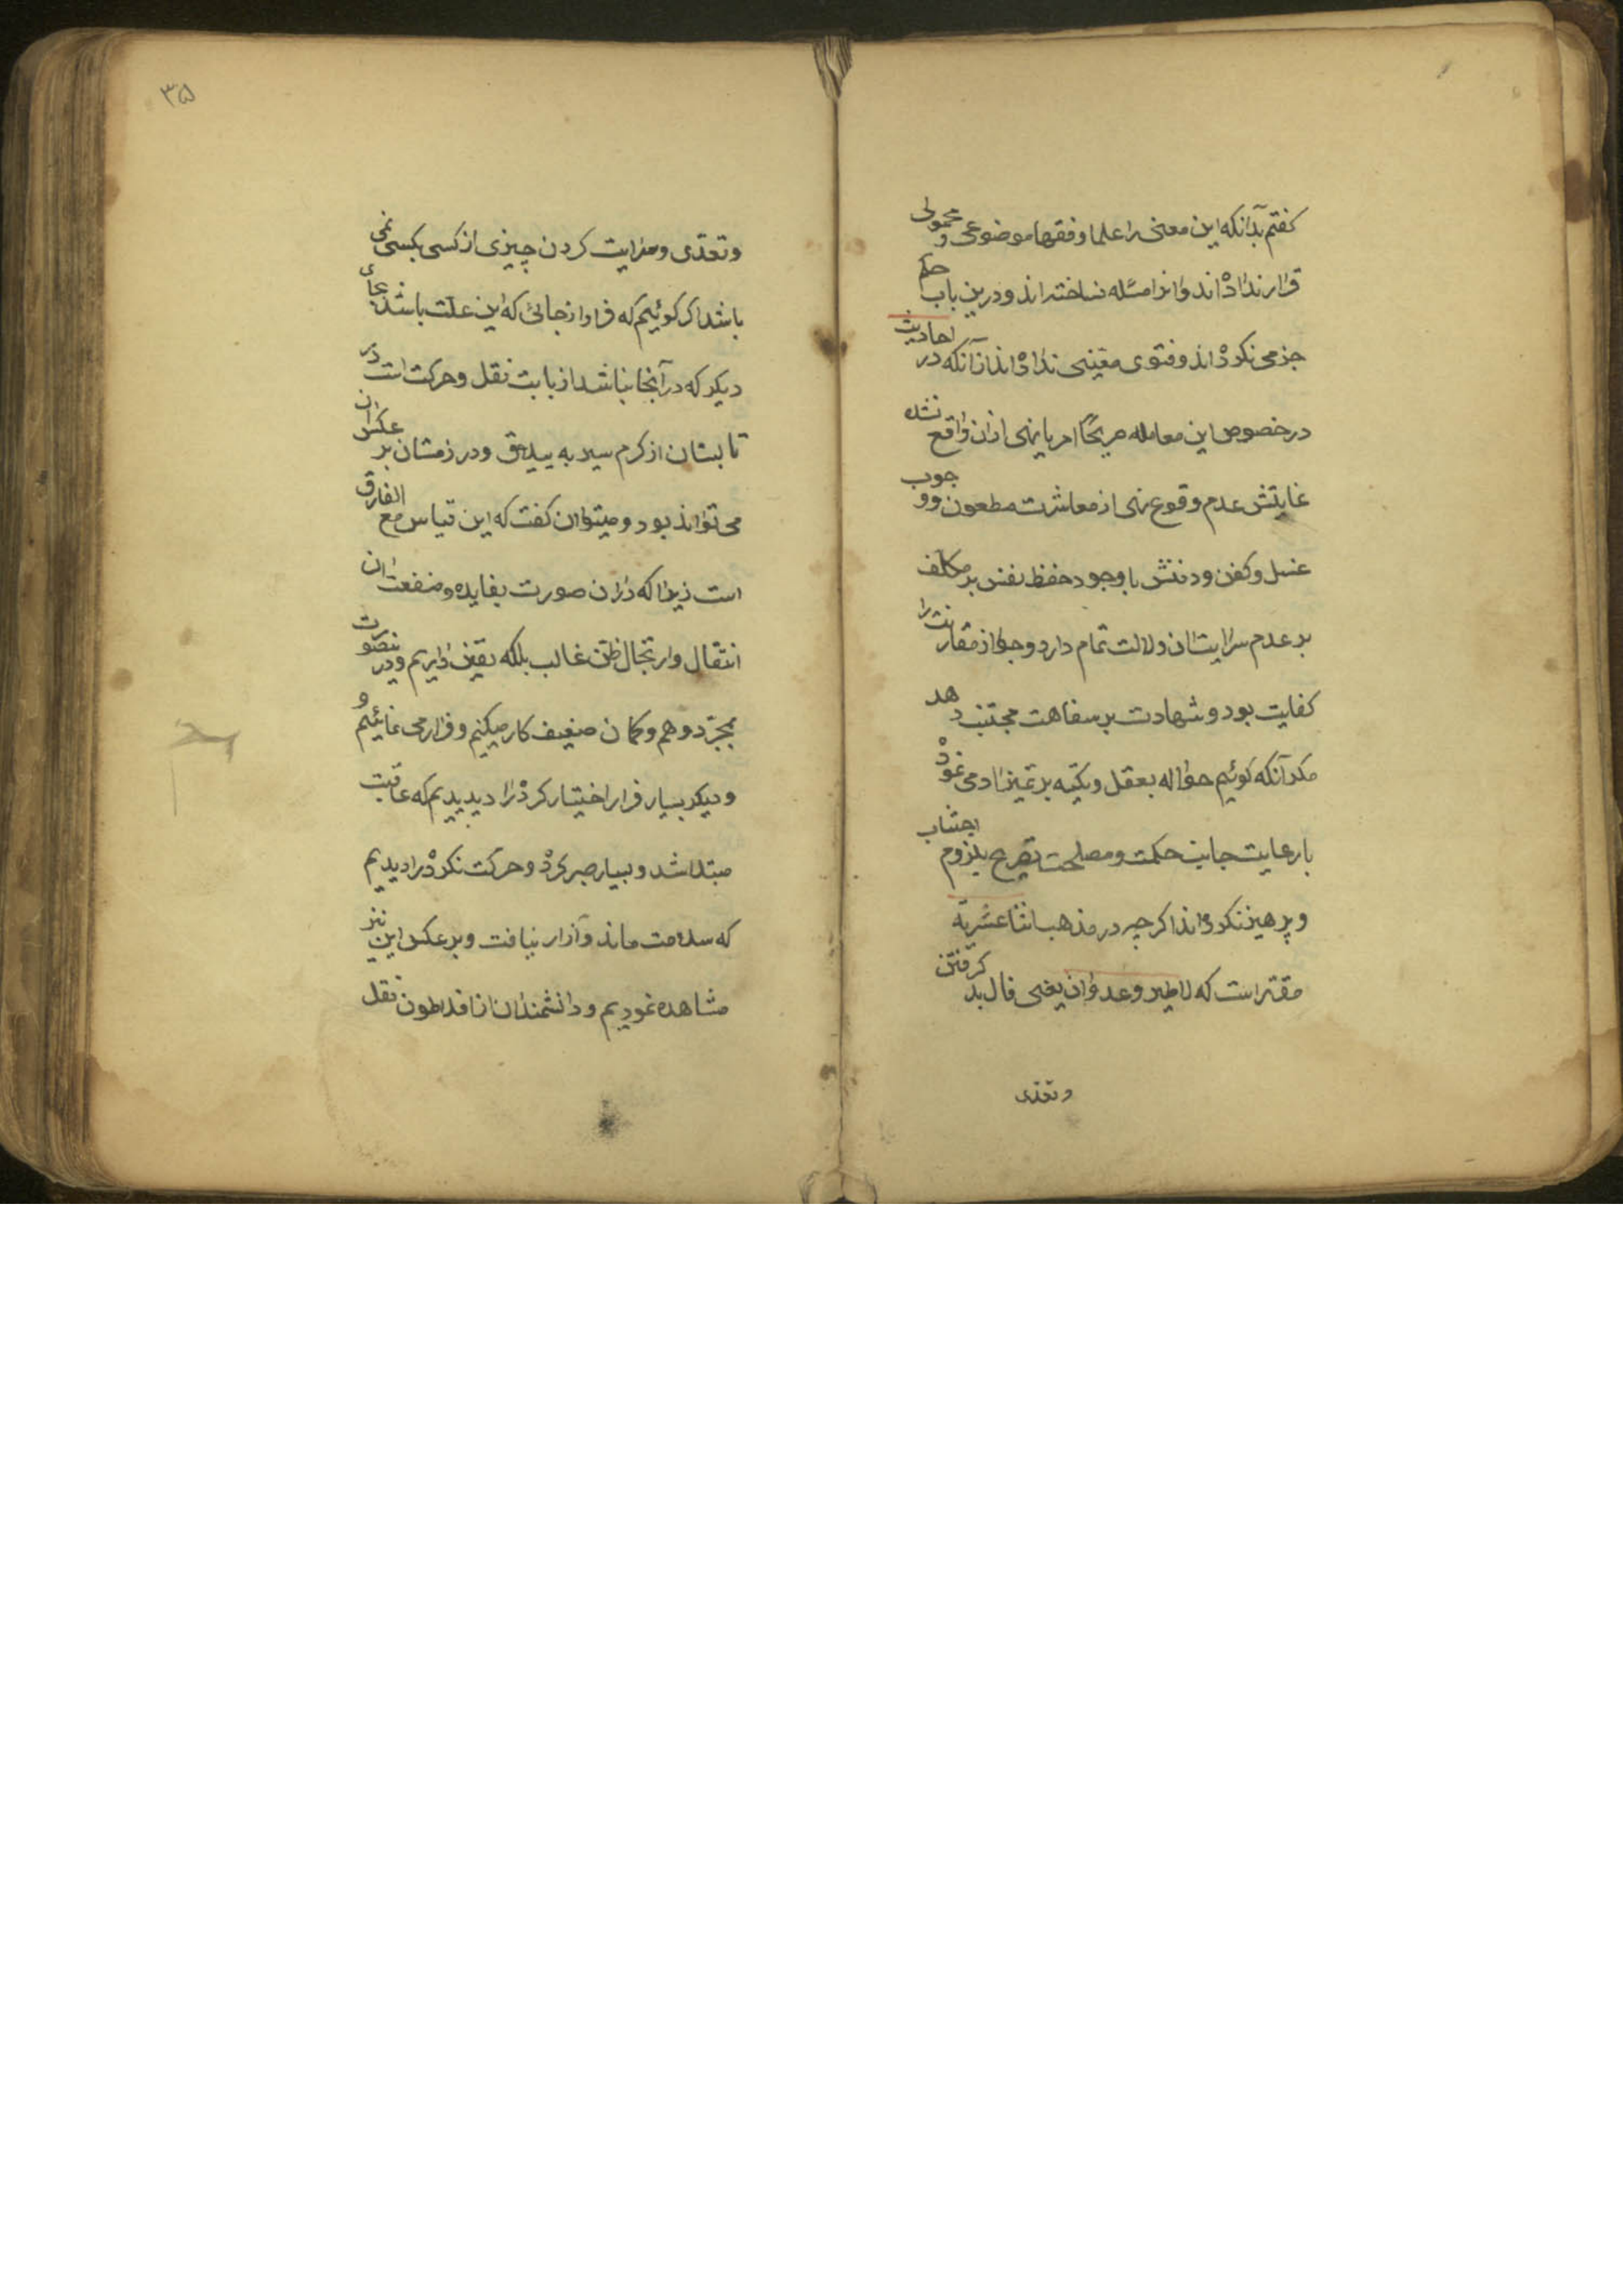 کفتم بدانکه این معنی را علما و فقها موضوعی و محمولی
قرار نداده‌اند و انرا مسئله نساخته‌اند و درین باب حکم
جزمی نکرده‌اند و فتوی معینی نداده‌اند از آنکه در احادیث
در خصوص این معامله صریحًا امر یا نهی ازان واقع نشده
غایتش عدم وقوع نهی از معاشرت مطعون و وجوب
غسل و کفن و دفنش با وجود حفظ نفس بر مکلف
بر عدم سرایت ان دلالت تمام دارد و جواز مقارنت را
کفایت بود و شهادت بر سفاهت مجتنب دهد
مکر آنکه کوئیم حواله بعقل و تکیه بر تمیز ادمی نموده
با رعایت جانب حکمت و مصلحت تصریح بلزوم اجتناب
و پرهیز نکرده‌اند اکرچه در مذهب اثنا عشریّه
مقرّر است که لا طیر و عدوان یعنی فال بد کرفتن
و تعدّی
۳۵
و تعدّی و سرایت کردن چیزی از کسی بکسی نمی
باشد اکر کوئیم که فرار از جائی که این علت باشد بجای
دیکر که در آنجا نباشد از بابت نقل و حرکت است در
تابستان از کرم سیر به ییلاق و در زمستان بر عکس ان
می تواند بود و میتوان کفت که این قیاس مع الفارق
است زیرا که دران صورت بفایده و منفعت ان
انتقال و ارتحال ظن غالب بلکه یقین داریم و درینصورت
بمجرّد وهم و کمان ضعیف کار میکنیم و فرار می نمائیم و
و دیکر بسیار فرار اختیار کرده را دیدیم که عاقبت
مبتلا شد و بسیار صبر کرده و حرکت نکرده را دیدیم
که سلامت ماند و آزار نیافت و بر عکس این نیز
مشاهده نمودیم و دانشمندان از افلاطون نقل